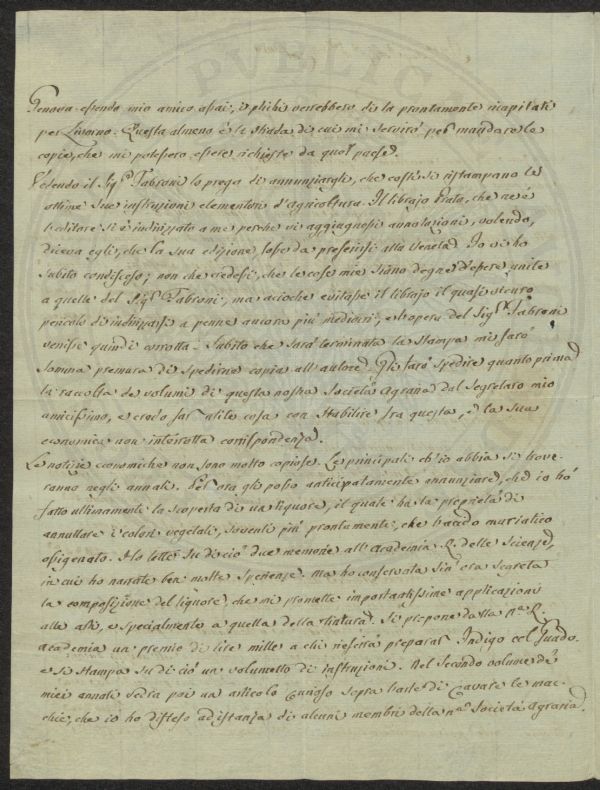 Genova essendo mio amico assai, i plichi verrebbero di la prontamente ricapitati
per Livorno. Questa almeno è la strada di cui mi servirò per mandare le
copie, che mi potessero essere richieste da quel paese.
Vedendo il Sig.r Fabroni lo prego di annunziargli, che costì si ristampano le
ottime sue instruzioni elementari d'agricoltura. Il librajo Prato, che ne è
l'editore si è indirizzato a me perche vi aggiugnessi annotazioni, volendo,
diceva egli, che la sua edizione fosse da preferirsi alla Veneta. Io vi ho
subito condisceso; non che credessi, che le cose mie siano degne d'essere unite
a quelle del Sig.r Fabroni, ma acioche evitasse il librajo il quasi sicuro
pericolo di indirizzarsi a penne ancora più mediocri, e l'opera del Sig.r Fabroni
venisse quindi corrotta. Subito che sarà terminata la stampa mi farò
somma premura di spedirne copia all'autore. Gli farò spedire quanto prima
la raccolta de volumi di questa nostra Società Agraria dal Segretaro mio
amicissimo, e credo far utile cosa con stabilire fra questa, e la sua
economica non interrotta corrispondenza.
Le notizie economiche non sono molto copiose. Le principali ch'io abbia si trove-
ranno negli annali. Per ora gli posso anticipatamente annunziare, ch'io ho
fatto ultimamente la scoperta di un liquore, il quale ha la proprietà di
annullare i colori vegetali, sovente più prontamente, che l'acido muriatico
ossigenato. Ho letto su di ciò due memorie all'Academia R. delle Scienze,
in cui ho narrate ben molte sperienze. Ma ho conservata sin ora segreta
la composizione del liquore, che mi promette importantissime applicazioni
alle arti, e specialmente a quella della tintura. Si propone dalla n.a R.
academia un premio di lire mille a chi riescirà preparar Indigo col Guado.
e si stampa su di ciò un volumetto di instruzioni. Nel secondo volume de'
miei annali vedrà poi un articolo curioso sopra l'arte di cavare le mac-
chie, che io ho disteso ad istanza di alcuni membri della n.a Società Agraria.
PUBLIC